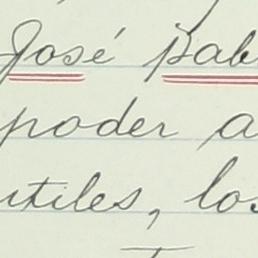 José Pab
poder a
utiles, los